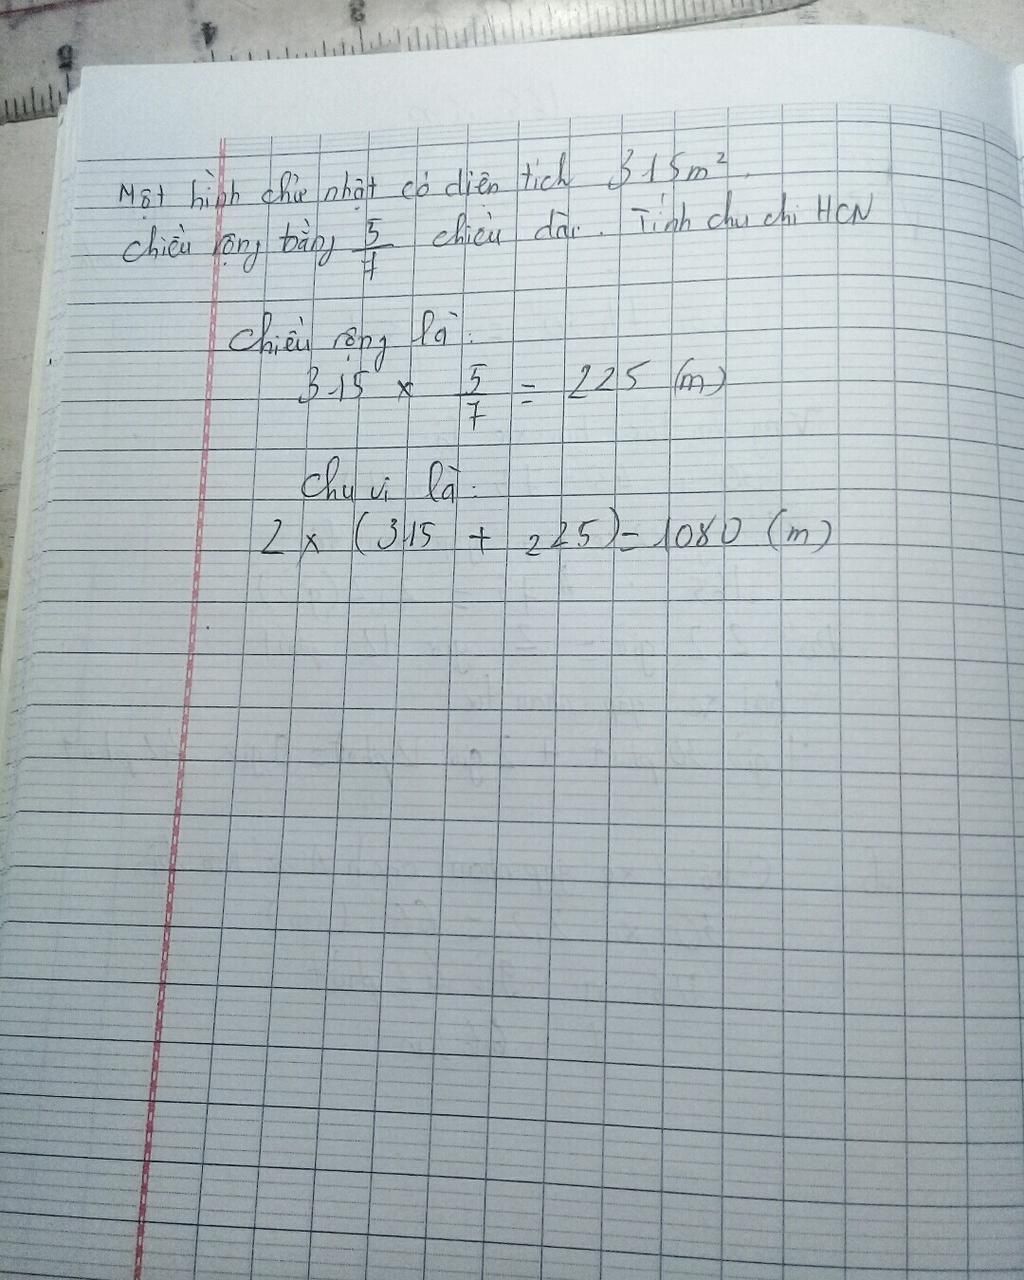 5 4 3
Một hình chữ nhật có diện tích 315m².
chiều rộng bằng 5/7 chiều dài. Tính chu chi HCN
Chiều rộng là:
315 x 5/7 = 225 (m)
Chu vi là:
2 x (315 + 225) = 1080 (m)